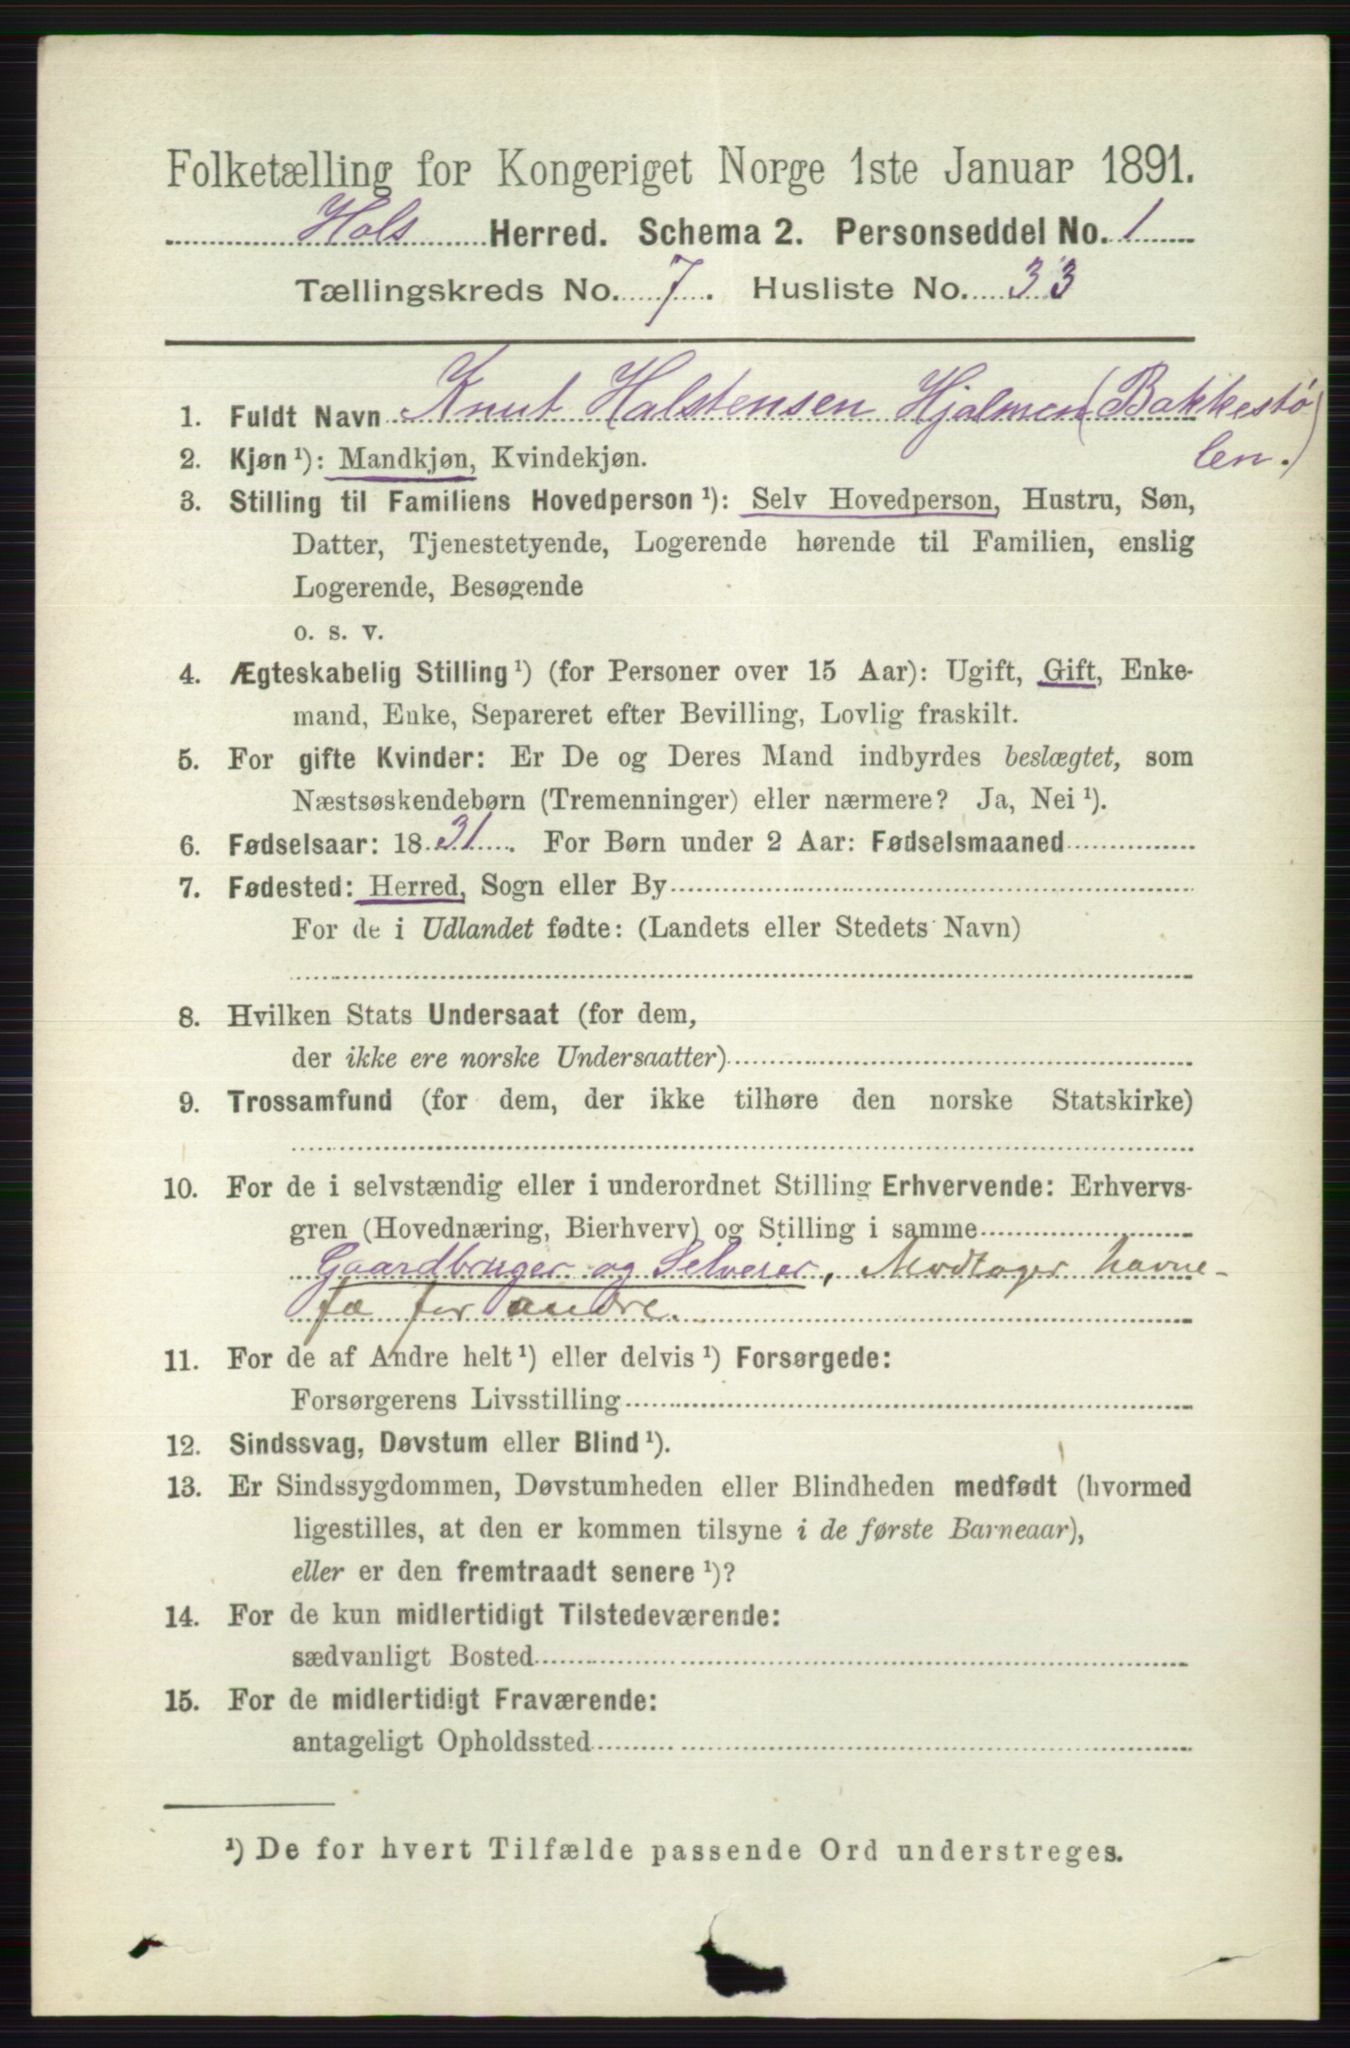 Folketælling for Kongeriget Norge 1ste Januar 1891.
Hols Herred. Schema 2. Personseddel No. 1
Tællingskreds No. 7. Husliste No. 33
1. Fuldt Navn Knut Halstensen Hjalmen (Bakkestø
len.)
2. Kjøn ¹): Mandkjøn, Kvindekjøn.
3. Stilling til Familiens Hovedperson ¹): Selv Hovedperson, Hustru, Søn,
Datter, Tjenestetyende, Logerende hørende til Familien, enslig
Logerende, Besøgende
o. s. v.
4. Ægteskabelig Stilling ¹) (for Personer over 15 Aar): Ugift, Gift, Enke-
mand, Enke, Separeret efter Bevilling, Lovlig fraskilt.
5. For gifte Kvinder: Er De og Deres Mand indbyrdes beslægtet, som
Næstsøskendebørn (Tremenninger) eller nærmere? Ja, Nei ¹).
6. Fødselsaar: 1831. For Børn under 2 Aar: Fødselsmaaned
7. Fødested: Herred, Sogn eller By
For de i Udlandet fødte: (Landets eller Stedets Navn)
8. Hvilken Stats Undersaat (for dem,
der ikke ere norske Undersaatter)
9. Trossamfund (for dem, der ikke tilhøre den norske Statskirke)
10. For de i selvstændig eller i underordnet Stilling Erhvervende: Erhvervs-
gren (Hovednæring, Bierhverv) og Stilling i samme
Gaardbruger og Selveier, Modtager havne-
fæ for andre.
11. For de af Andre helt ¹) eller delvis ¹) Forsørgede:
Forsørgerens Livsstilling
12. Sindssvag, Døvstum eller Blind ¹).
13. Er Sindssygdommen, Døvstumheden eller Blindheden medfødt (hvormed
ligestilles, at den er kommen tilsyne i de første Barneaar),
eller er den fremtraadt senere ¹)?
14. For de kun midlertidigt Tilstedeværende:
sædvanligt Bosted
15. For de midlertidigt Fraværende:
antageligt Opholdssted
¹) De for hvert Tilfælde passende Ord understreges.